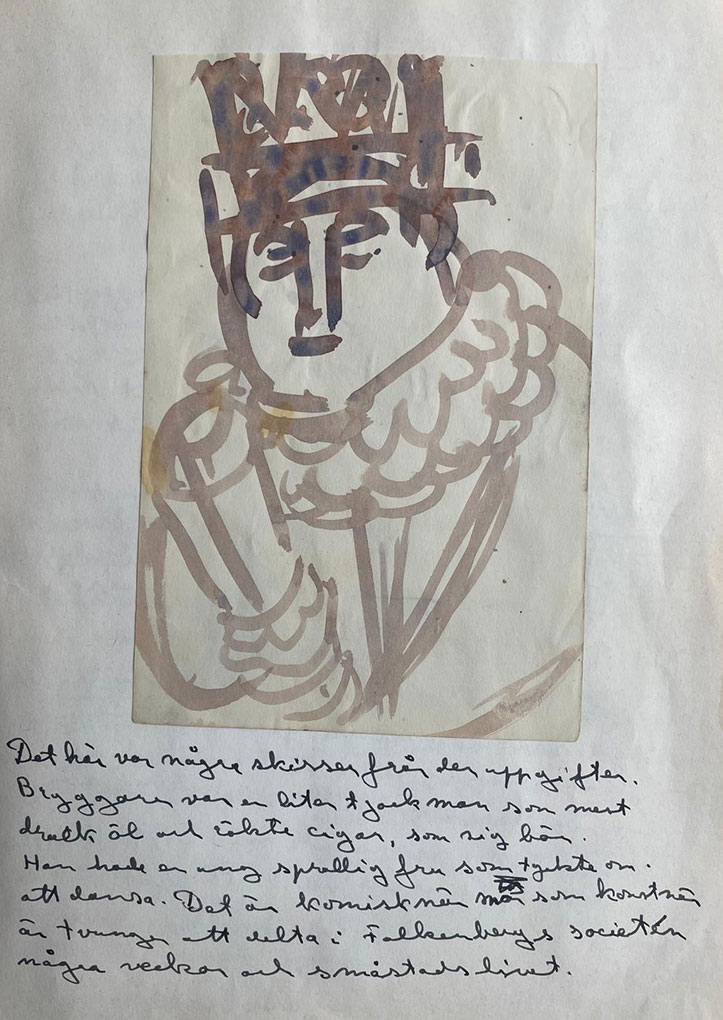 Det här var några skisser från den uppgiften.
Bryggaren var en liten tjock man som mest
drack öl och rökte cigar, som sig bör.
Han hade en ung sprallig fru som tyckte om
att dansa. Det är komiskt när man som konstnär
är tvungen att delta i Falkenbergs societén
några veckor och småstadslivet.